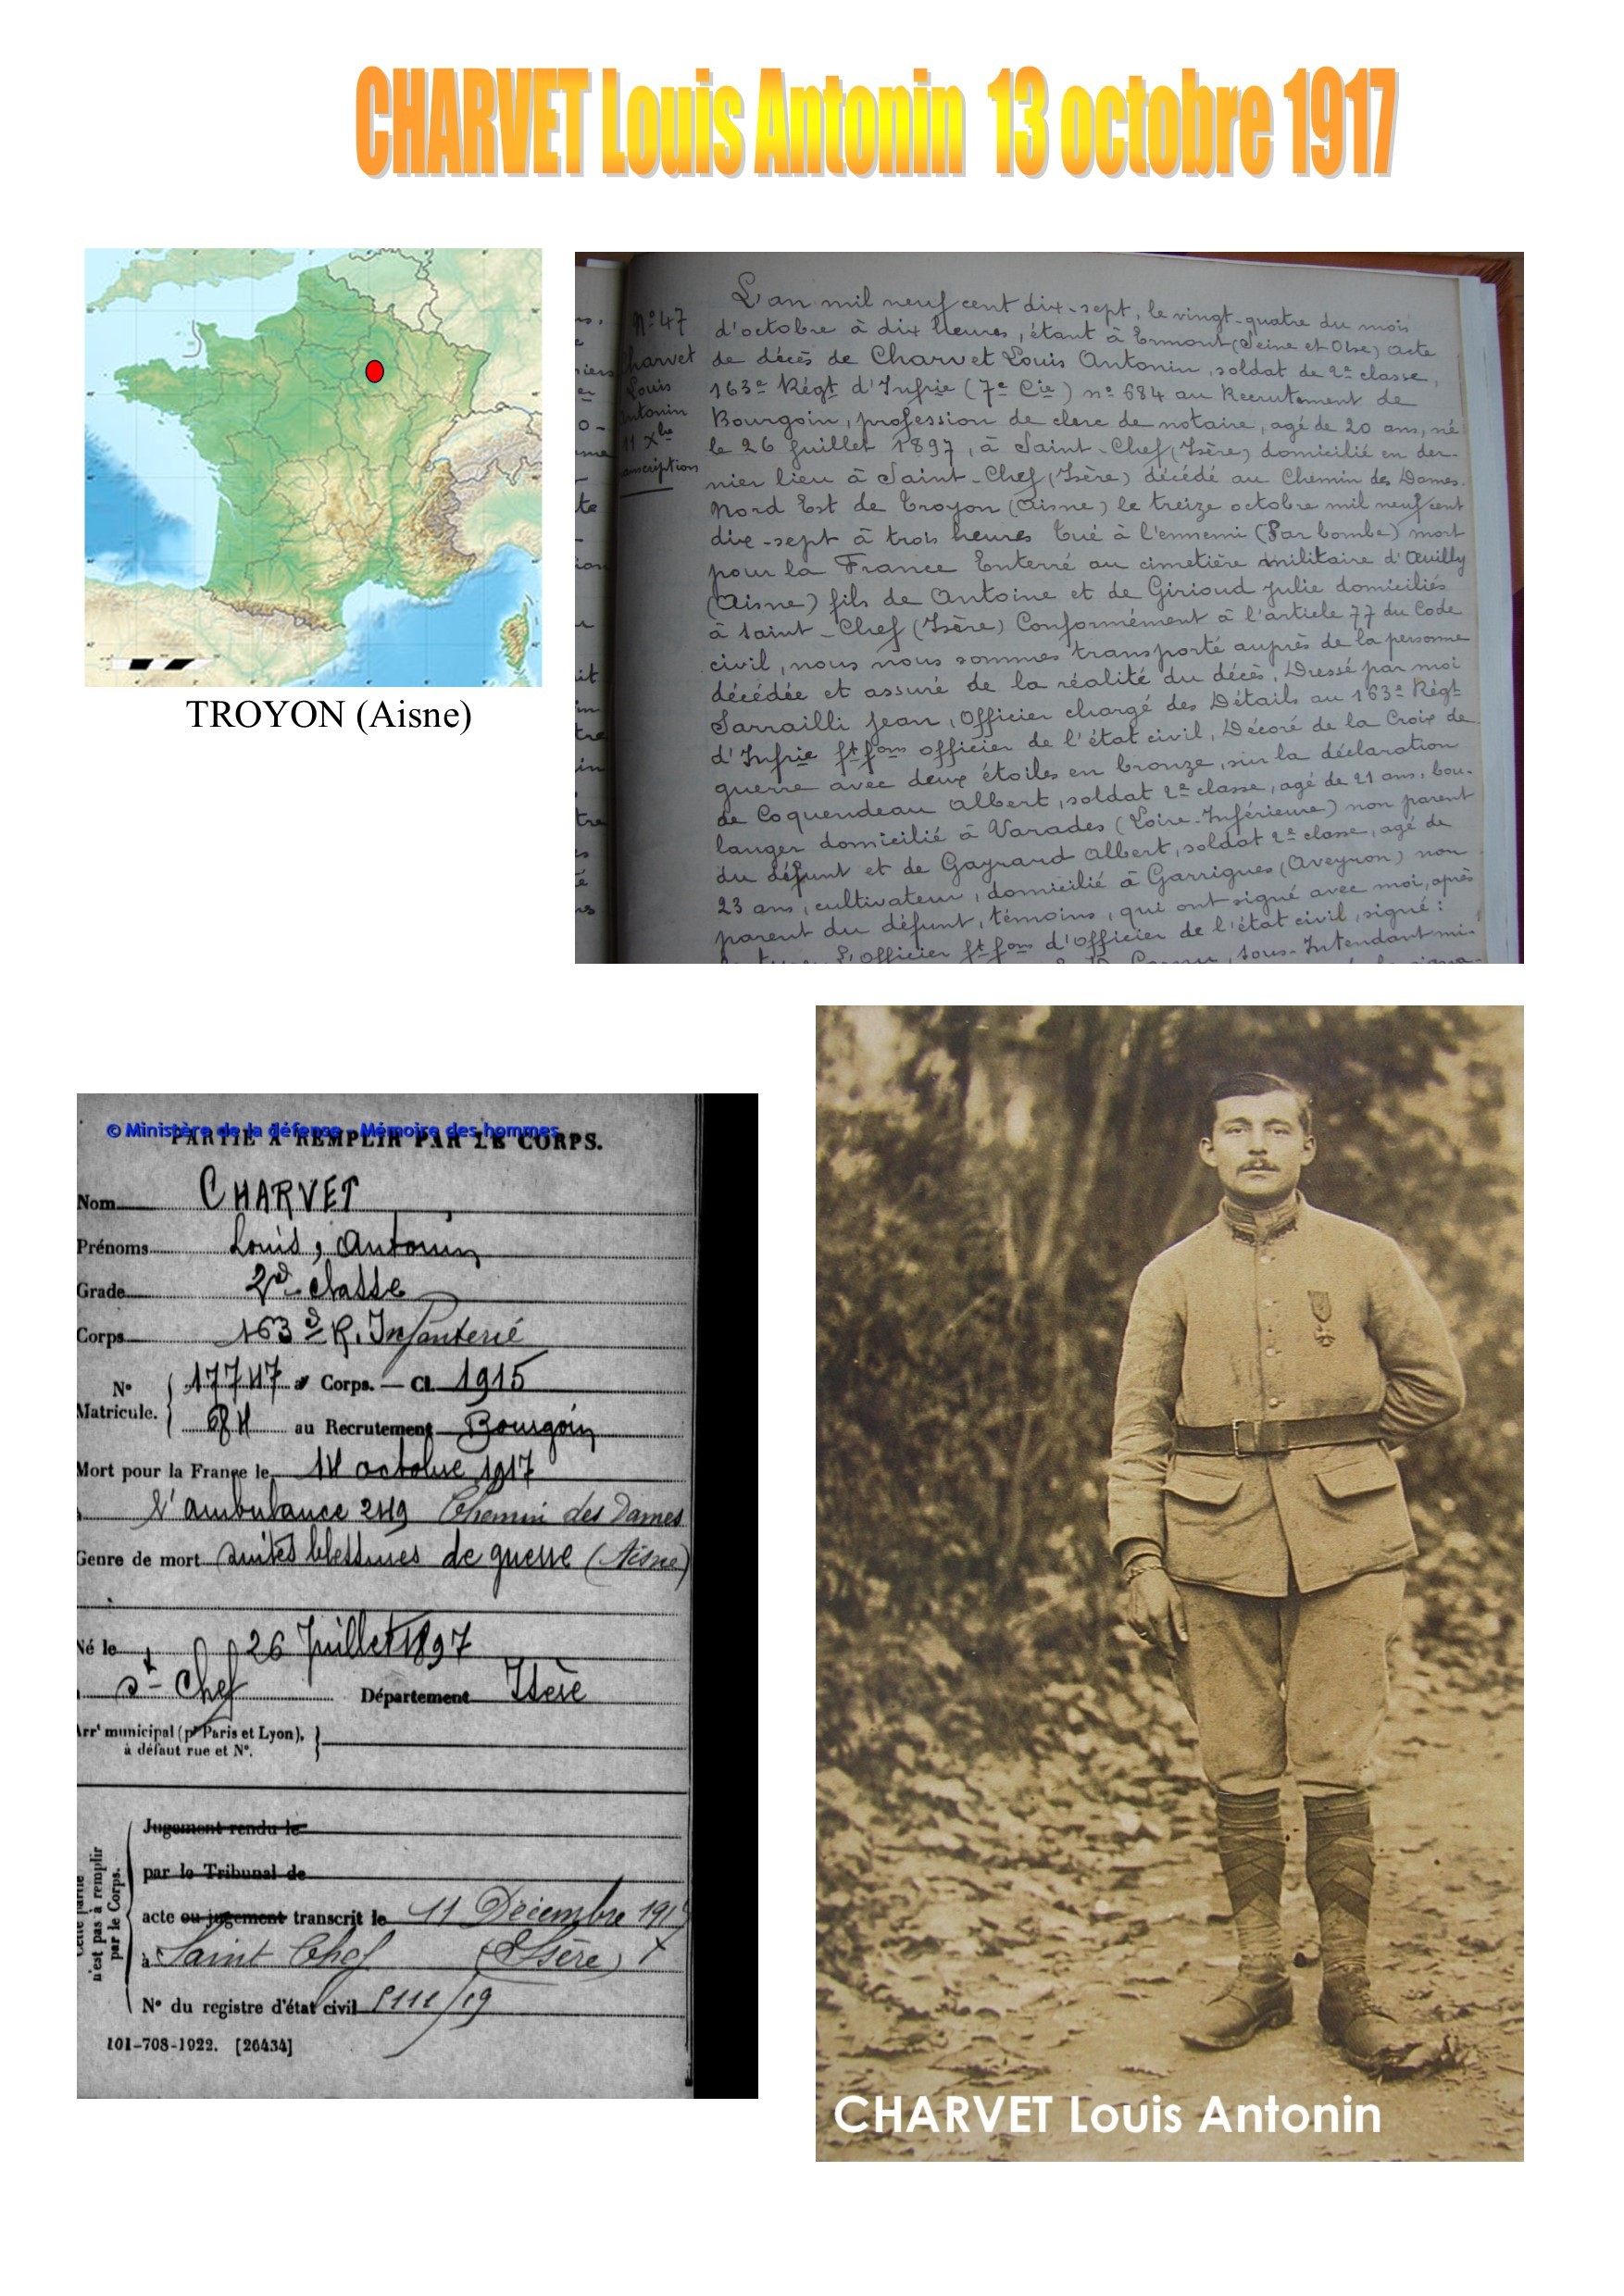 CHARVET Louis Antonin 13 octobre 1917
TROYON (Aisne)
N° 47
Charvet
Louis
Antonin
11 Xbre
transcription
L'an mil neuf cent dix-sept, le vingt-quatre du mois
d'octobre à dix heures, étant à Ermont (Seine et Oise) acte
de décès de Charvet Louis Antonin, soldat de 2e classe,
163e Régt d'Infrie (7e Cie) n° 684 au Recrutement de
Bourgoin, profession de clerc de notaire, agé de 20 ans, né
le 26 juillet 1897, à Saint-Chef (Isère) domicilié en der-
nier lieu à Saint-Chef (Isère) décédé au Chemin des Dames.
Nord Est de Troyon (Aisne) le treize octobre mil neuf cent
dix-sept à trois heures Tué à l'ennemi (Par bombe) mort
pour la France Enterré au cimetière militaire d'Œuilly
(Aisne) fils de Antoine et de Girioud Julie domiciliés
à Saint-Chef (Isère) Conformément à l'article 77 du Code
civil, nous nous sommes transporté auprès de la personne
décédée et assuré de la réalité du décès. Dressé par moi
Sarrailli Jean, Officier chargé des Détails au 163e Régt
d'Infrie ft fons officier de l'état civil, Décoré de la Croix de
guerre avec deux étoiles en bronze, sur la déclaration
de Coquendeau Albert, soldat 2e classe, agé de 21 ans, bou-
langer domicilié à Varades (Loire-Inférieure) non parent
du défunt et de Gayraud Albert, soldat 2e classe, agé de
23 ans, cultivateur, domicilié à Garrigues (Aveyron) non
parent du défunt, témoins, qui ont signé avec moi, après
L'officier ft fons d'Officier de l'état civil, signé :
sous-Intendant mi-
© Ministère de la défense - Mémoire des hommes
PARTIE À REMPLIR PAR LE CORPS.
Nom CHARVET
Prénoms Louis, Antonin
Grade 2e classe
Corps 163e R. Infanterie
N° Matricule. 17747 au Corps. — Cl. 1915
684 au Recrutement Bourgoin
Mort pour la France le 14 octobre 1917
l'ambulance 249 Chemin des Dames
Genre de mort suites blessures de guerre (Aisne)
Né le 26 Juillet 1897
St-Chef Département Isère
Arrt municipal (pr Paris et Lyon),
à défaut rue et N°.
Cette partie
n'est pas à remplir
par le Corps.
Jugement rendu le
par le Tribunal de
acte ou jugement transcrit le 11 Décembre 191
à Saint Chef (Isère)
N° du registre d'état civil
101-708-1922. [26434]
CHARVET Louis Antonin